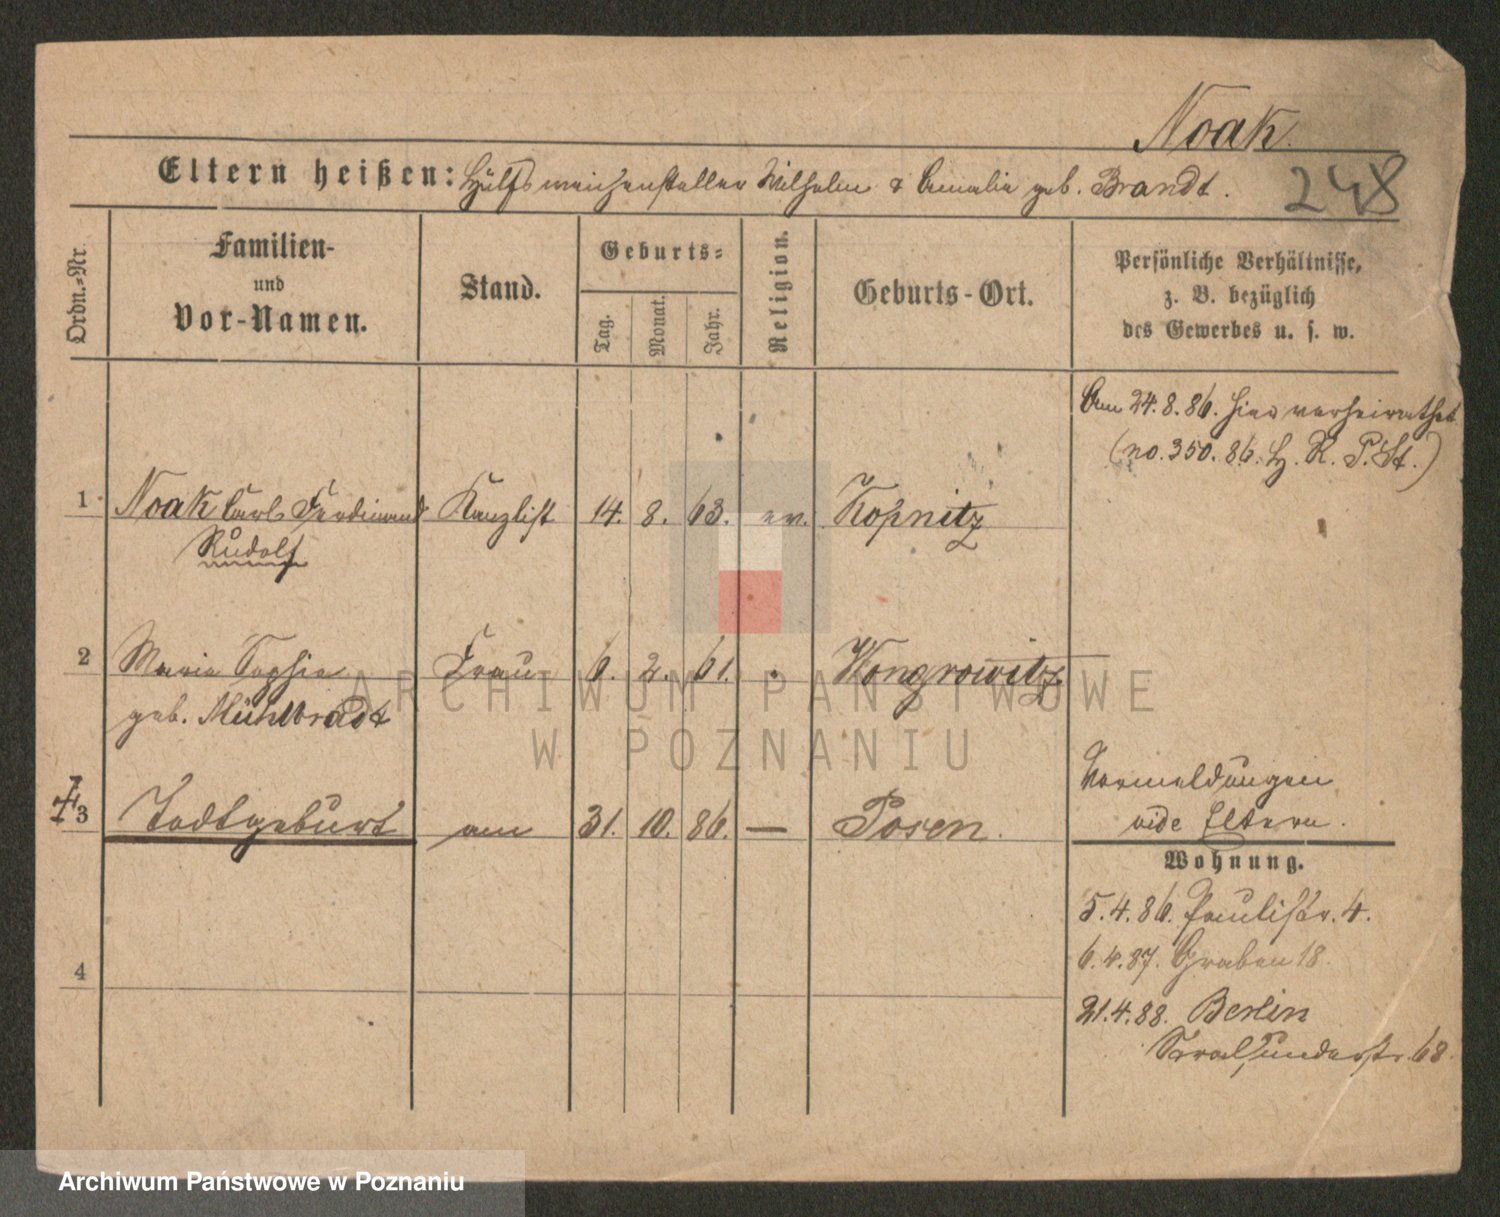 Noak.
248
Eltern heißen: Hülfsweichensteller Wilhelm & Amalie geb. Brandt.
Ordn.-Nr.
Familien-
und
Vor-Namen.
Stand.
Geburts-
Tag.
Monat.
Jahr.
Religion.
Geburts-Ort.
Persönliche Verhältnisse,
z. B. bezüglich
des Gewerbes u. s. w.
Am 24.8.86. hier verheirathet
(no. 350. 86. H. R. P. St.)
1 Noak Carl Ferdinand Kanzlist 14. 8. 63. ev. Kopnitz
Rudolf
2 Marie Sophie Frau 6. 2. 61. " Wongrowitz
geb. Mühlbradt
Vormeldungen
vide Eltern.
3 Todtgeburt am 31. 10. 86. — Posen.
Wohnung.
5.4.86. Paulistr. 4.
6.4.87. Graben 18.
4
21.4.88. Berlin
Stralsunderstr. 68.
ARCHIWUM PAŃSTWOWE
W POZNANIU
Archiwum Państwowe w Poznaniu